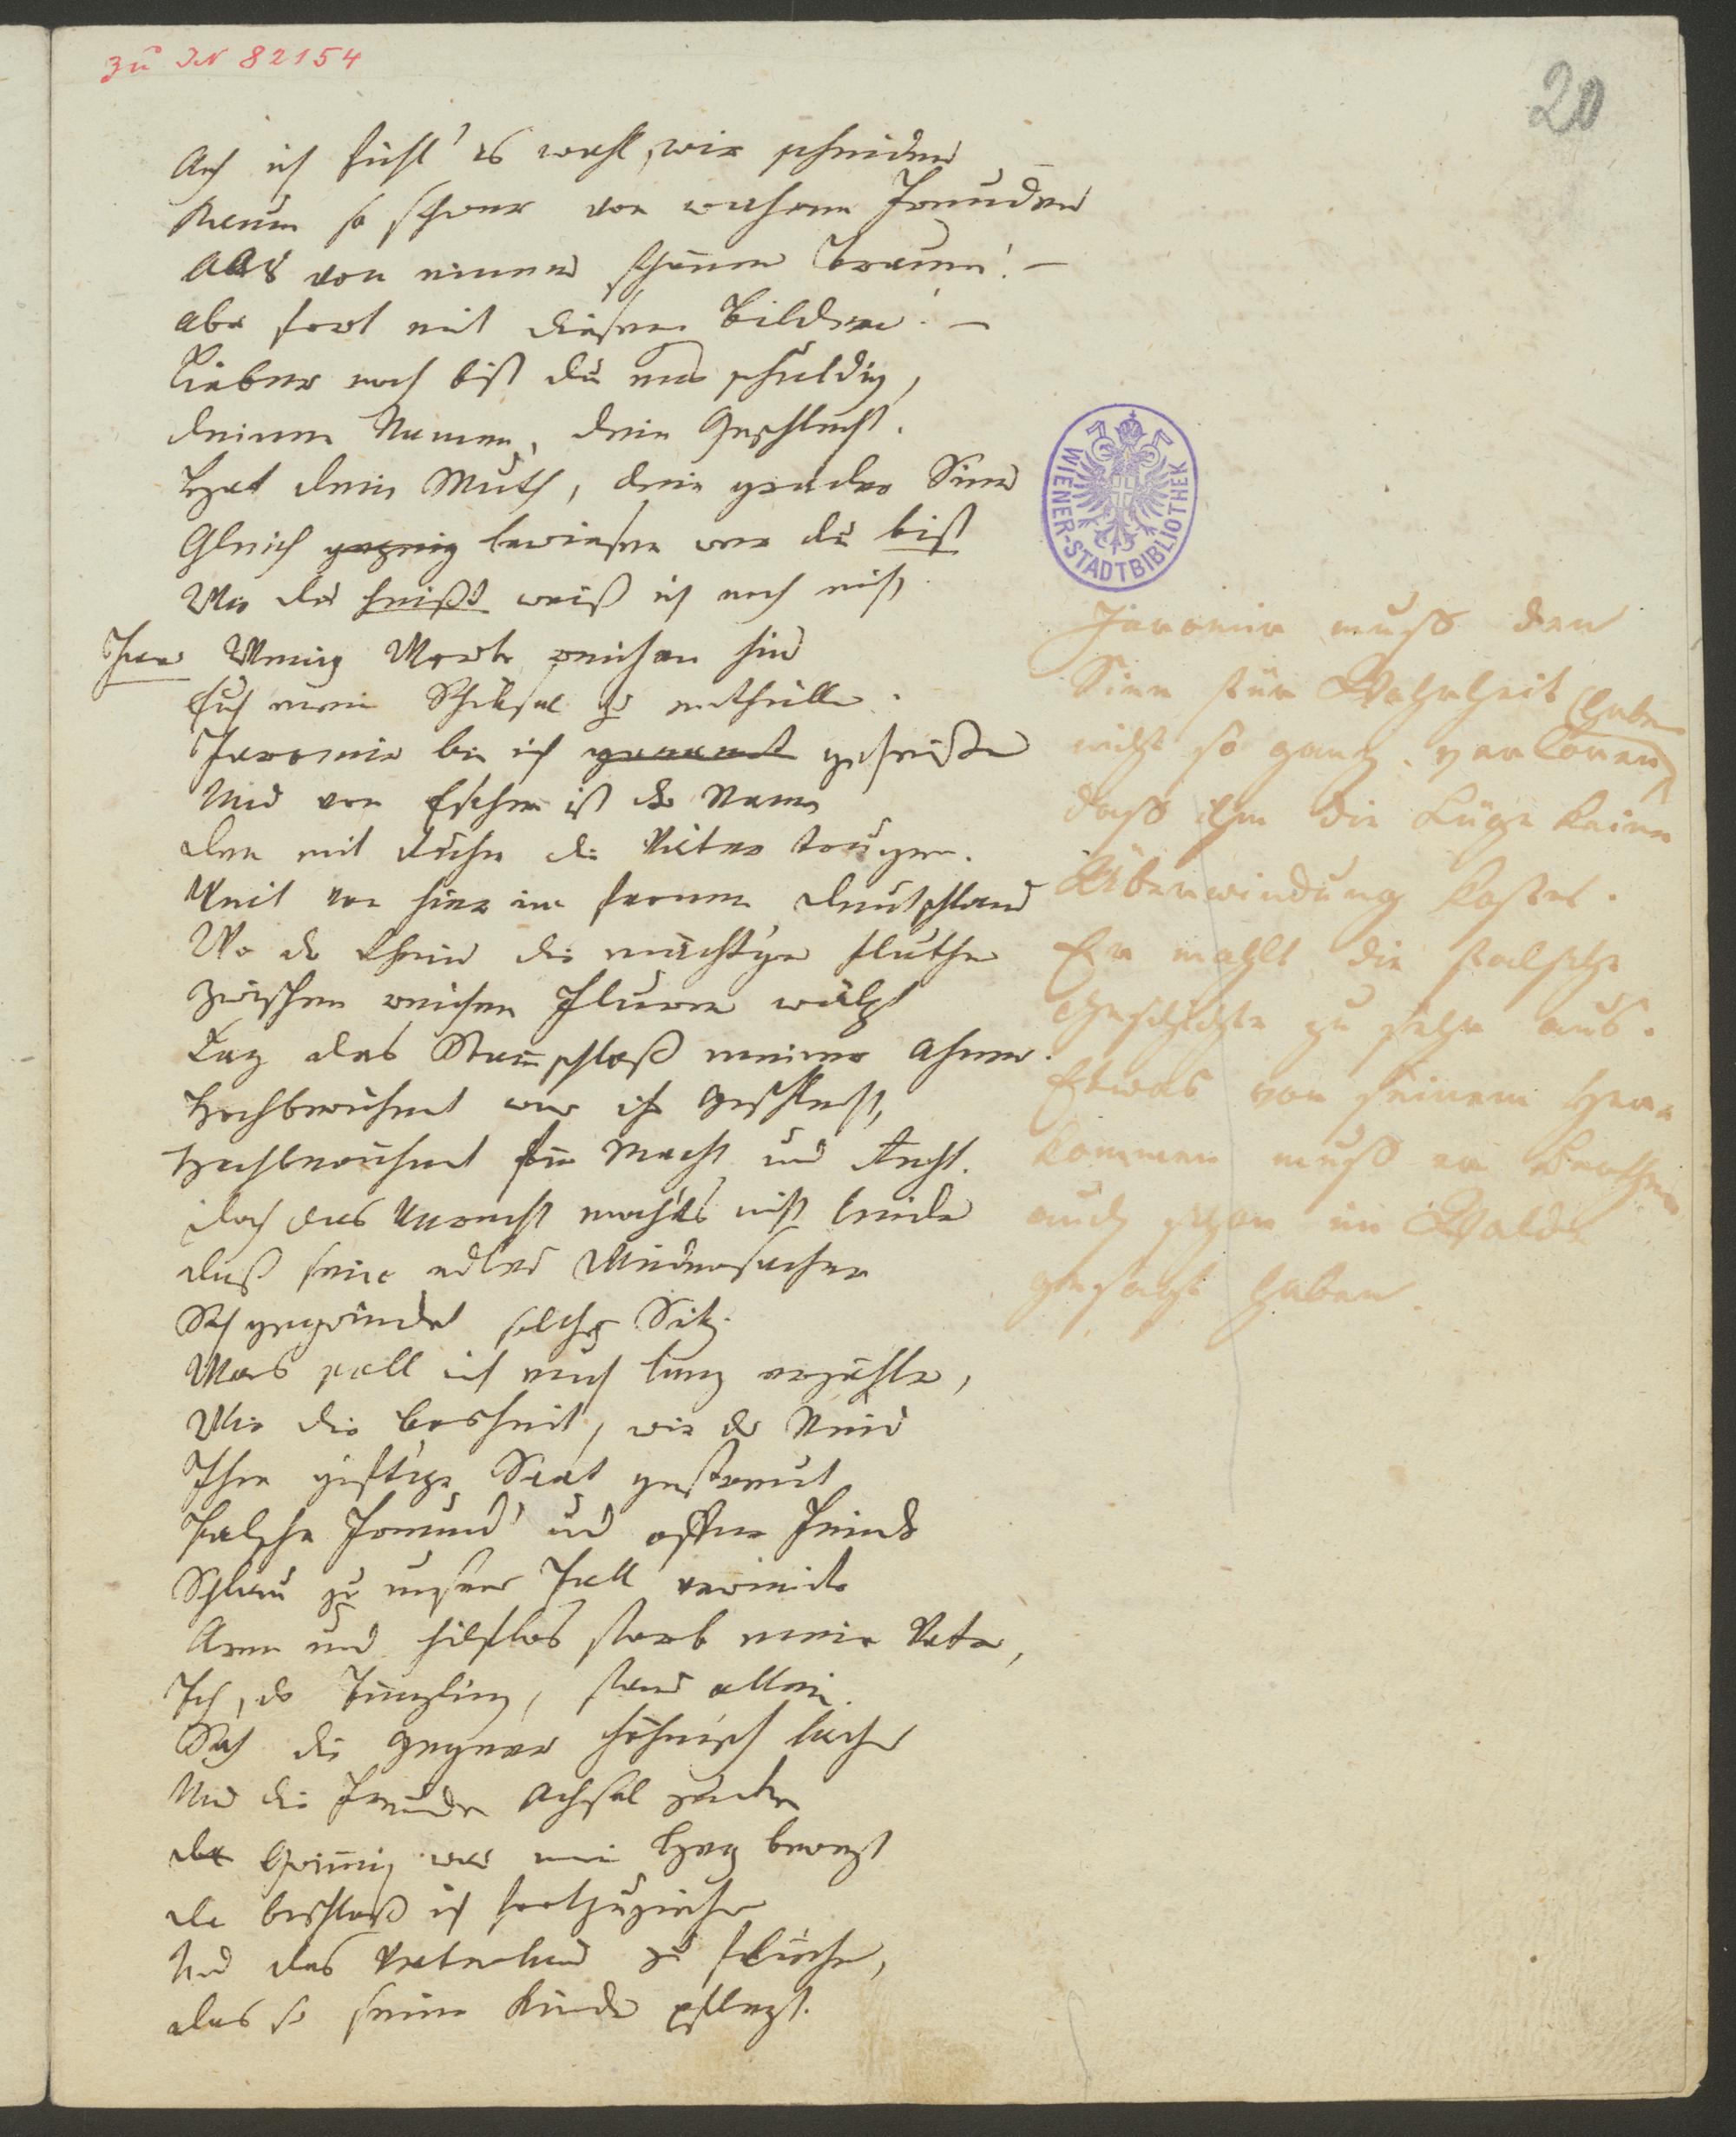 zu IN 82154
20
Ach ich fühl' es wohl, wir scheiden
Kaum so schwer von wahren Freuden
Als von einem schönen Traum! –
Aber fort mit diesen Bildern! –
Lieber noch bist du uns schuldig,
Deinen Namen, dein Geschlecht.
Hat dein Muth, dein grader Sinn
Gleich bewiesen wer du bist
Wie du heißt weiß ich noch nicht
Jar Wenig Worte reichen hin
Euch mein Schiksal zu enthüllen.
Jaromir bin ich genannt geheißen
Und von Eschen ist der Name
Den mit Ruhm die Väter trugen.
Weit von hier im fernen Deutschland
Wo der Rhein die mächtgen Fluthen
Zwischen reichen Fluren wälzt
Lag das Stam̅schloß meiner Ahnen.
Hochberühmt war ihr Geschlecht,
Hochberühmt für Macht und Recht.
Doch das Unrecht mocht's nicht leiden
Daß sein edler Widersacher
Sich gegründet solchen Sitz.
Was soll ich euch lang erzählen,
Wie die Bosheit, wie der Neid
Ihre giftge Saat gestreut
Falsche Freund' und offne Feinde
Schlau zu unserm Fall vereint
Arm und hilflos starb mein Vater,
Ich, der Jüngling, stand allein.
Sah die Gegner höhnisch lachen
Und die Freunde Achsel zucken
Grim̅ig war mein Herz bewegt
Da beschloß ich fortzuziehen
Und das Vaterland zu fliehen,
Das so seine Kinder pflegt.
WIENER-STADTBIBLIOTHEK
Jaromir muß den
Sinn für Wahrheit
nicht so ganz verloren haben
daß ihm die Lüge keine
Überwindung kostet.
Er mahlt die falsche
Geschichte zu sehr aus.
Etwas von seinem Her
kommen muß er Berthen
auch schon im Walde
gesagt haben.